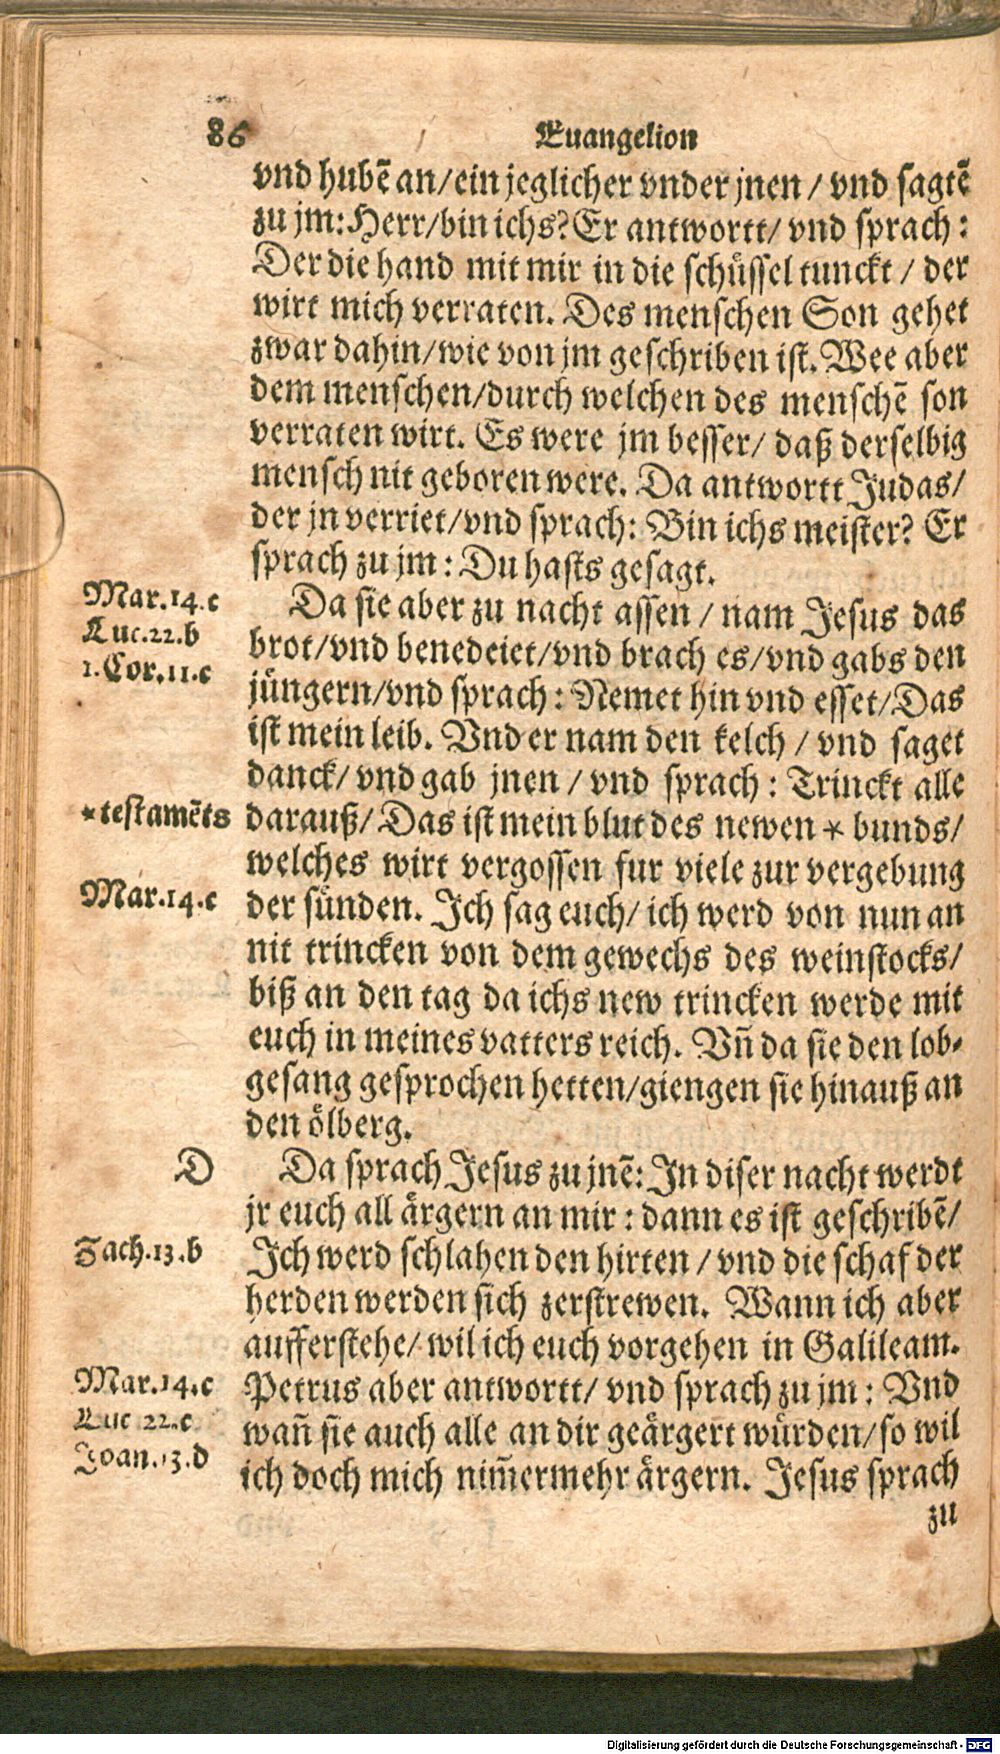 86 Euangelion
vnd hubē an/ein jeglicher vnder jnen / vnd sagtē
zu jm: Herr/bin ichs? Er antwortt/ vnd sprach:
Der die hand mit mir in die schüssel tunckt / der
wirt mich verraten. Des menschen Son gehet
zwar dahin/wie von jm geschriben ist. Wee aber
dem menschen/durch welchen des menschē son
verraten wirt. Es were jm besser/ daß derselbig
mensch nit geboren were. Da antwortt Judas/
der jn verriet/vnd sprach: Bin ichs meister? Er
sprach zu jm: Du hasts gesagt.
Mar.14.c Da sie aber zu nacht assen / nam Jesus das
Luc.22.b brot/vnd benedeiet/vnd brach es/vnd gabs den
1.Cor.11.c jüngern/vnd sprach: Nemet hin vnd esset/Das
ist mein leib. Vnd er nam den kelch / vnd saget
danck/ vnd gab jnen / vnd sprach: Trinckt alle
*testamēts darauß/ Das ist mein blut des newen * bunds/
welches wirt vergossen fur viele zur vergebung
Mar.14.c der sünden. Ich sag euch/ ich werd von nun an
nit trincken von dem gewechs des weinstocks/
biß an den tag da ichs new trincken werde mit
euch in meines vatters reich. Vñ da sie den lob-
gesang gesprochen hetten/giengen sie hinauß an
den ölberg.
D Da sprach Jesus zu jnē: In diser nacht werdt
jr euch all ärgern an mir: dann es ist geschribē/
Zach.13.b Ich werd schlahen den hirten / vnd die schaf der
herden werden sich zerstrewen. Wann ich aber
aufferstehe/ wil ich euch vorgehen in Galileam.
Mar.14.c Petrus aber antwortt/ vnd sprach zu jm: Vnd
Luc 22.c wañ sie auch alle an dir geärgert würden/so wil
Joan.13.d ich doch mich nim̄ermehr ärgern. Jesus sprach
zu
Digitalisierung gefördert durch die Deutsche Forschungsgemeinschaft - DFG